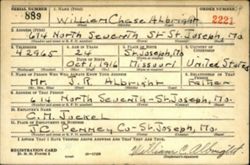 SERIAL NUMBER 1. NAME (Print) ORDER NUMBER
889 William Chase Albright 2221
2. ADDRESS (Print)
614 North Seventh St. St. Joseph, Mo.
3. TELEPHONE 4. AGE IN YEARS 5. PLACE OF BIRTH 6. COUNTRY OF CITIZENSHIP
4-2965 24 St. Joseph, Mo.
DATE OF BIRTH
Oct. 1, 1916 Missouri United States
7. NAME OF PERSON WHO WILL ALWAYS KNOW YOUR ADDRESS 8. RELATIONSHIP OF THAT PERSON
Mr. J. R. Albright Father
9. ADDRESS OF THAT PERSON
614 North Seventh - St. Joseph, Mo.
10. EMPLOYER'S NAME
C. M. Jackel
J. C. Penney Co - St. Joseph, Mo.
I AFFIRM THAT I HAVE VERIFIED ABOVE ANSWERS AND THAT THEY ARE TRUE.
William C Albright